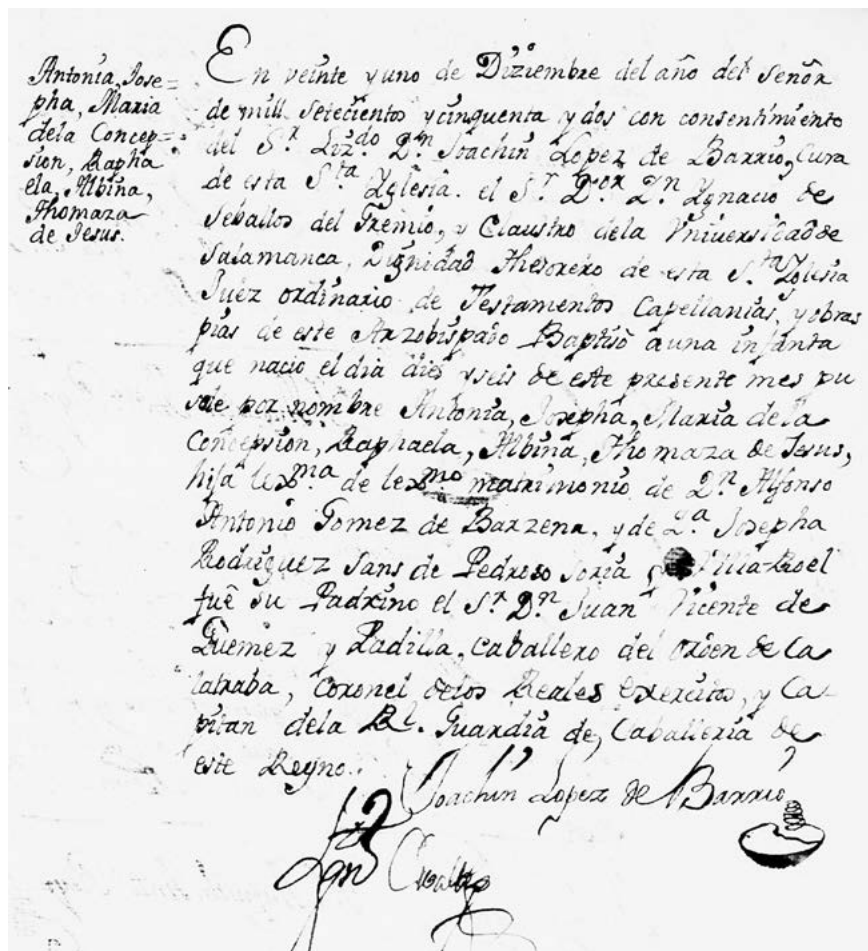 Antonia, Jose=
pha, Maria
dela Concep=
sion, Rapha
ela, Albina,
Thomaza
de Jesus.
En veinte y uno de Diziembre del año del Señor
de mill setecientos y cinquenta y dos con consentimiento
del Sr. Lizdo. Dn. Joachin Lopez de Barrio, Cura
de esta Sta. Yglesia. el Sr. Dor. Dn. Ygnacio de
Seballos del Gremio, y Claustro dela Vniversidad de
Salamanca, Dignidad Thesorero de esta Sta. Yglesia
Juez ordinario de Testamentos Capellanias, y obras
pias de este Arzobispado Baptisó a una infanta
que nacio el dia dies y seis de este presente mes pu
sele por nombre Antonia, Josepha, Maria dela
Concepsion, Raphaela, Albina, Thomaza de Jesus,
hija lexma. de lexmo. matrimonio de Dn. Alfonso
Antonio Gomez de Barzena, y de Da. Josepha
Rodriguez Sans de Pedroso Soria y Villa-Roel
fué su Padrino el Sr. Dn. Juan Vicente de
Guemez y Padilla, Caballero del orden de Ca
latraba, Coronel delos Reales exercitos, y Ca-
pitan dela Rl. Guardia de Caballeria de
este Reyno.
Joachin Lopez de Barrio